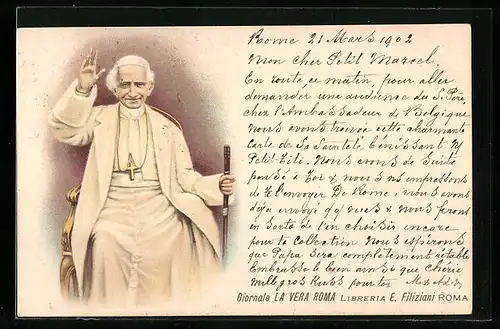 Rome 21 Mars 1902
Mon cher Petit Marcel.
En route, ce matin, pour aller
demander une audience du S. Père,
chez l'Ambassadeur de Belgique
nous avons trouvée cette charmante
Carte de Sa Sainteté bénissant
Petit Titi. Nous avons de suite
pensé à Toi & nous ns empressons
de te l'envoyer De Rome, nous avons
déjà envoyé 90 vues & nous ferons
en sorte de t'en choisir encore
pour ta collection Nous espérons
que Papa sera complètement rétabli
Embrasse le bien ainsi que chérie
mille gros Kuss pour toi
Giornale LA VERA ROMA LIBRERIA E. Filiziani ROMA